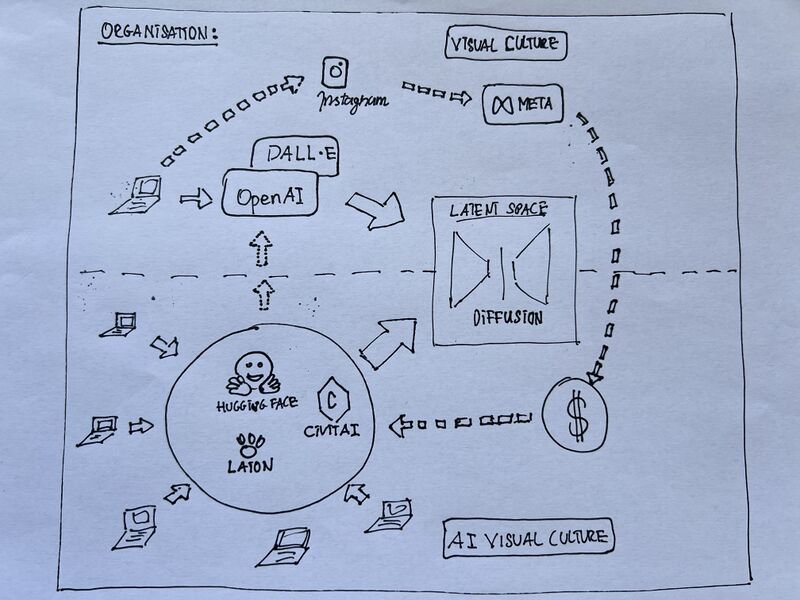 ORGANISATION:
VISUAL CULTURE
Instagram
META
DALL·E
OpenAI
LATENT SPACE
DIFFUSION
HUGGING FACE
C
CIVITAI
LAION
$
AI VISUAL CULTURE